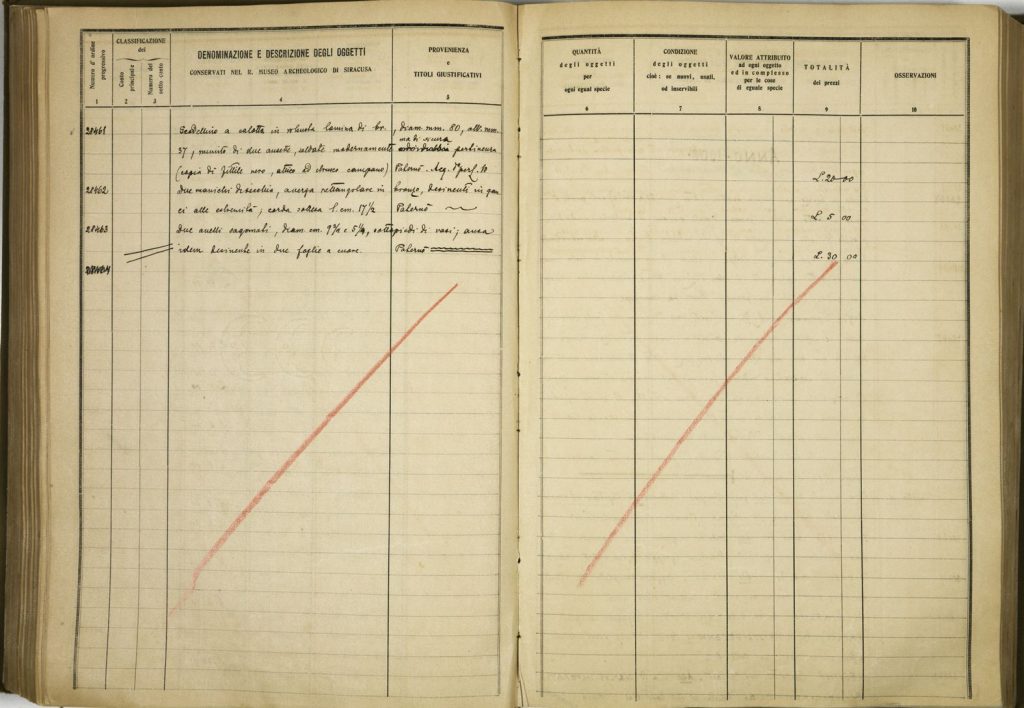 Numero d'ordine progressivo
CLASSIFICAZIONE
del
Conto principale
Numero del sotto conto
DENOMINAZIONE E DESCRIZIONE DEGLI OGGETTI
CONSERVATI NEL R. MUSEO ARCHEOLOGICO DI SIRACUSA
PROVENIENZA
e
TITOLI GIUSTIFICATIVI
1 2 3 4 5
28461 a calotta in robusta lamina di br. , diam. mm. 80, alt. mm.
37, munito di due ansette, saldate modernamente ma di sicura pertinenza
(copia di fittile nero, attico ed etrusco campano) Paternò. Acq.
28462 Due manichi di secchia, a verga rettangolare in bronzo, desinenti in gan
ci alle estremità; corda l. cm. 17 1/2 Paternò
28463 Due anelli sagomati, diam. cm. 9 e 5 , sottopiedi di vasi; ansa
idem desinente in due foglie a cuore. Paternò
28464
QUANTITÀ
degli oggetti
per
ogni egual specie
CONDIZIONE
degli oggetti
cioè: se nuovi, usati,
od inservibili
VALORE ATTRIBUITO
ad ogni oggetto
ed in complesso
per le cose
di eguale specie
TOTALITÀ
dei prezzi
OSSERVAZIONI
6 7 8 9 10
L. 20 00
L. 5 00
L. 30 00